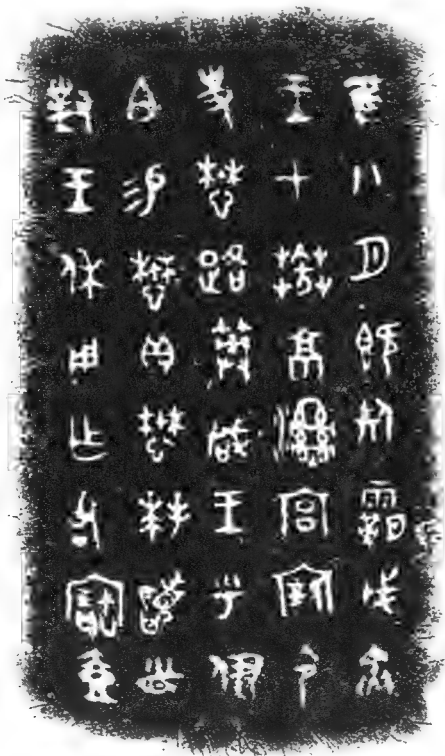 隹八月既死霸戊寅
王才𦰩京溼宮寴令
史懋路筭咸王乎伊
白易懋貝懋拜𩒨首
對王休用乍父丁寶壺